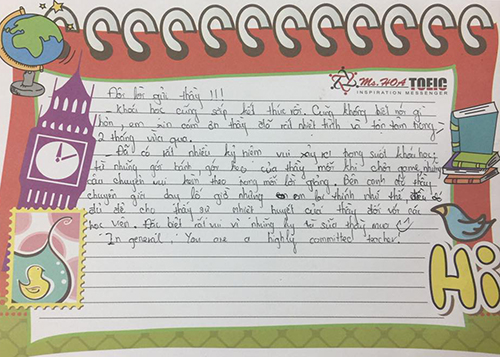 Ms. HOA TOEIC
INSPIRATION MESSENGER
Đôi lời gửi thầy !!!
Khóa học cũng sắp kết thúc rồi. Cũng không biết nói gì
hơn, em xin cảm ơn thầy đã rất nhiệt tình và tận tâm trong
2 tháng vừa qua.
Đã có rất nhiều kỷ niệm vui xảy ra trong suốt khóa học
từ những gói bánh, gói kẹo của thầy mỗi khi chơi game, những
câu chuyện vui kèm theo trong mỗi bài giảng. Đến cạnh đó thầy
chuyên gia dạy lố giờ những em lại thích như thế, điều đó
đủ để cho thấy sự nhiệt huyết của thầy đối với các
học viên. Đặc biệt rất vui vì những ly trà sữa thầy mua
In general, You are a highly committed teacher.
Hi